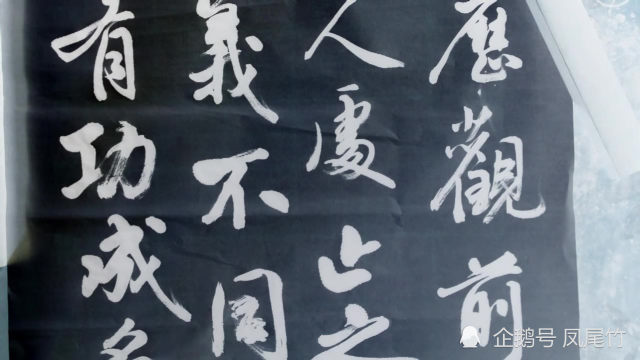 歷觀前
人處止之
義不同
有功成名
企鹅号 凤尾竹